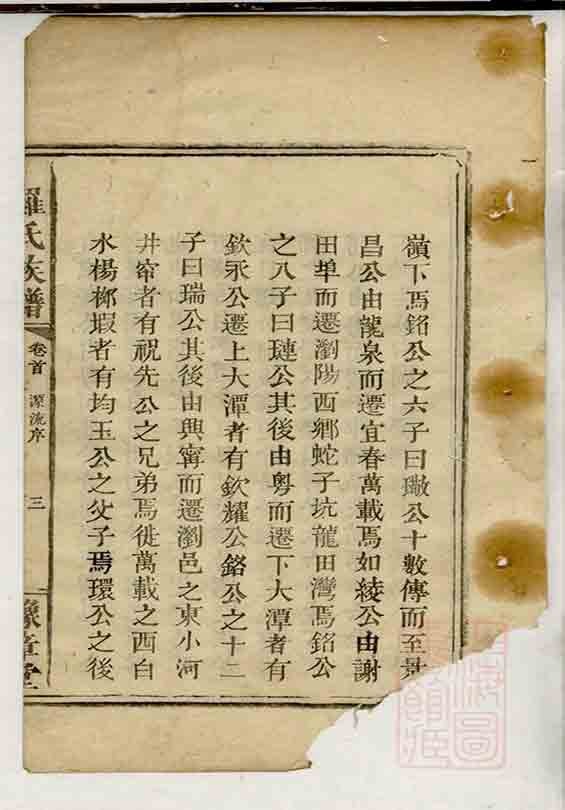 嶺下焉銘公之六子曰璥公十數傳而至景
昌公由龍泉而遷宜春萬載焉如綾公由謝
田埠而遷瀏陽西鄉蛇子坑龍田灣焉銘公
之八子曰璉公其後由粵而遷下大潭者有
欽承公遷上大潭者有欽耀公銘公之十二
子曰瑞公其後由興寧而遷瀏邑之東小河
井窂者有祝先公之兄弟焉徙萬載之西白
水楊梛塅者有均玉公之父子焉環公之後
羅氏族譜
卷首
源流序
三
豫章堂